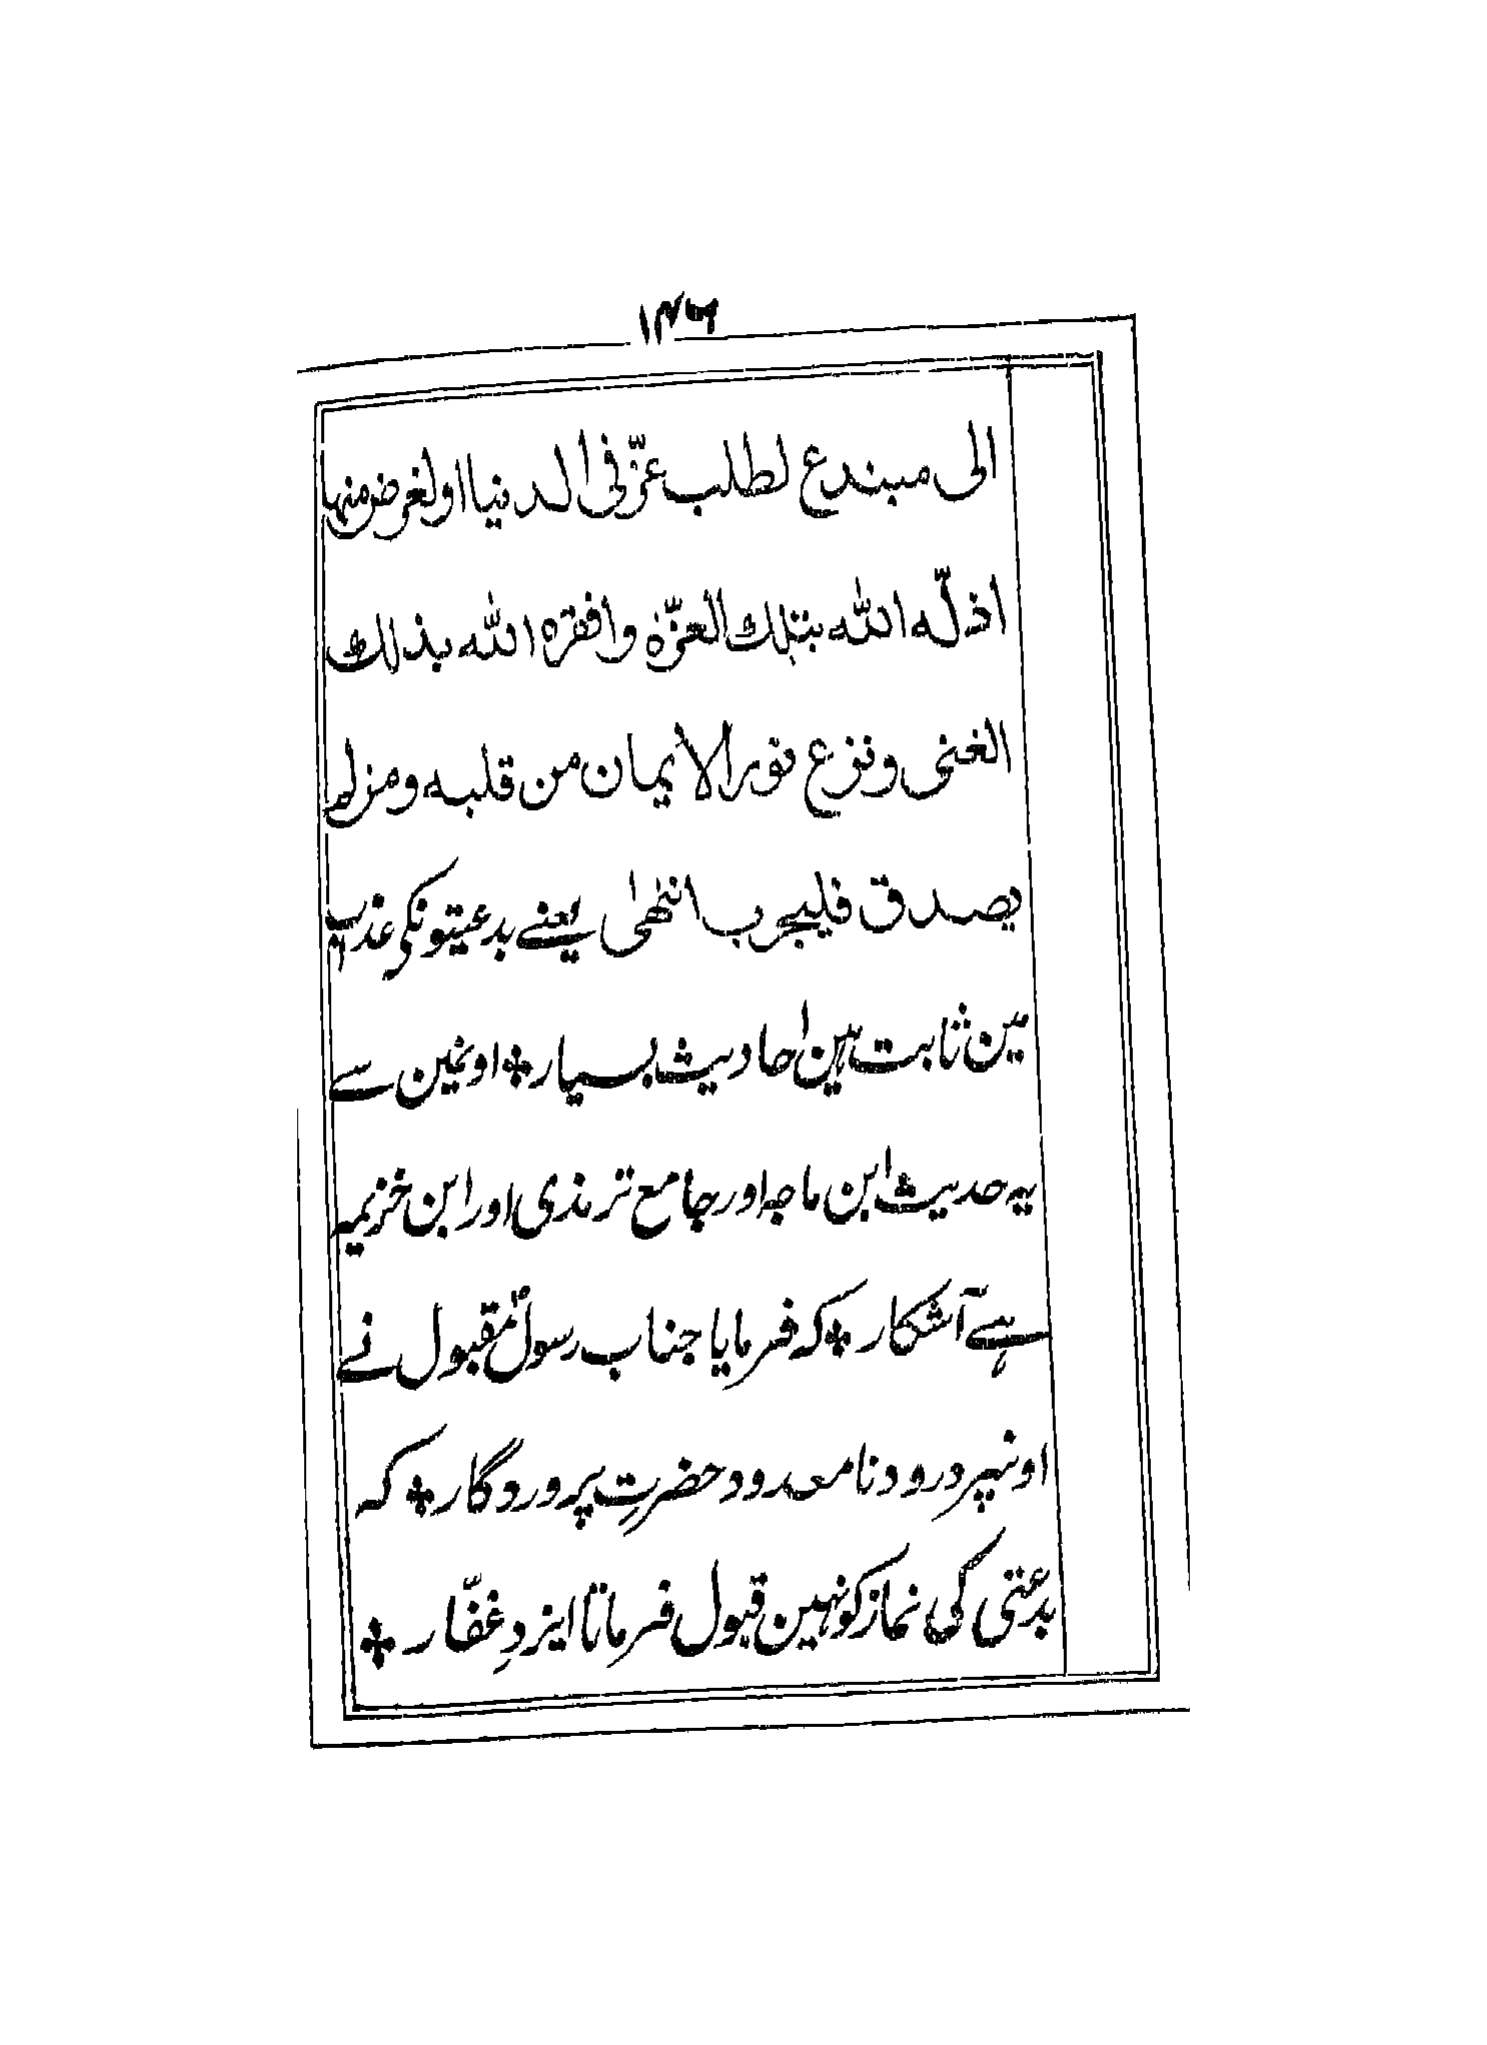 ۱۴۶
الی مبتدع لطلب عزّ فی الدنیا او لغرض منها
اذلّه الله بتلك العزّة وأفقره الله بذلك
الغنی ونزع نور الأیمان من قلبه ومن لم
یصدق فلیجرب انتهٰی یعنے بدعتیونکی عذاب
مین ثابت ہین احادیث بسیار ❊ اونمین سے
یہ حدیث ابن ماجہ اور جامع ترمذی اور ابن خزیمہ
سے ہے آشکار ❊ کہ فرمایا جناب رسول مقبول نے
اونپر درود نامعدود حضرتِ پروردگار ❊ کہ
بدعتی کی نماز کو نہین قبول فرماتا ایزدِ غفّار ❊